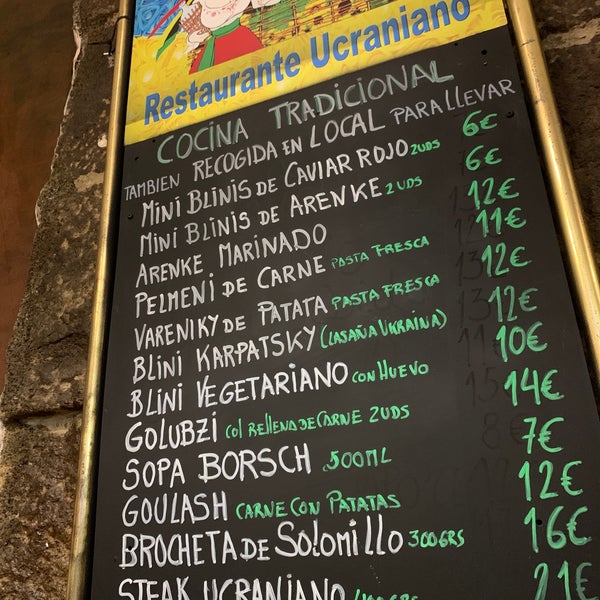 Restaurante Ucraniano
COCINA TRADICIONAL
TAMBIEN RECOGIDA EN LOCAL PARA LLEVAR
MINI BLINIS DE CAVIAR ROJO 2UDS 6€
MINI BLINIS DE ARENKE 2UDS 6€
ARENKE MARINADO 12€
PELMENI DE CARNE PASTA FRESCA 11€
VARENIKY DE PATATA PASTA FRESCA 12€
BLINI KARPATSKY (LASAÑA UKRAINA) 12€
BLINI VEGETARIANO CON HUEVO 10€
GOLUBZI COL RELLENA DE CARNE 2UDS 14€
SOPA BORSCH 500ML 7€
GOULASH CARNE CON PATATAS 12€
BROCHETA DE SOLOMILLO 300GRS 16€
STEAK UCRANIANO 21€